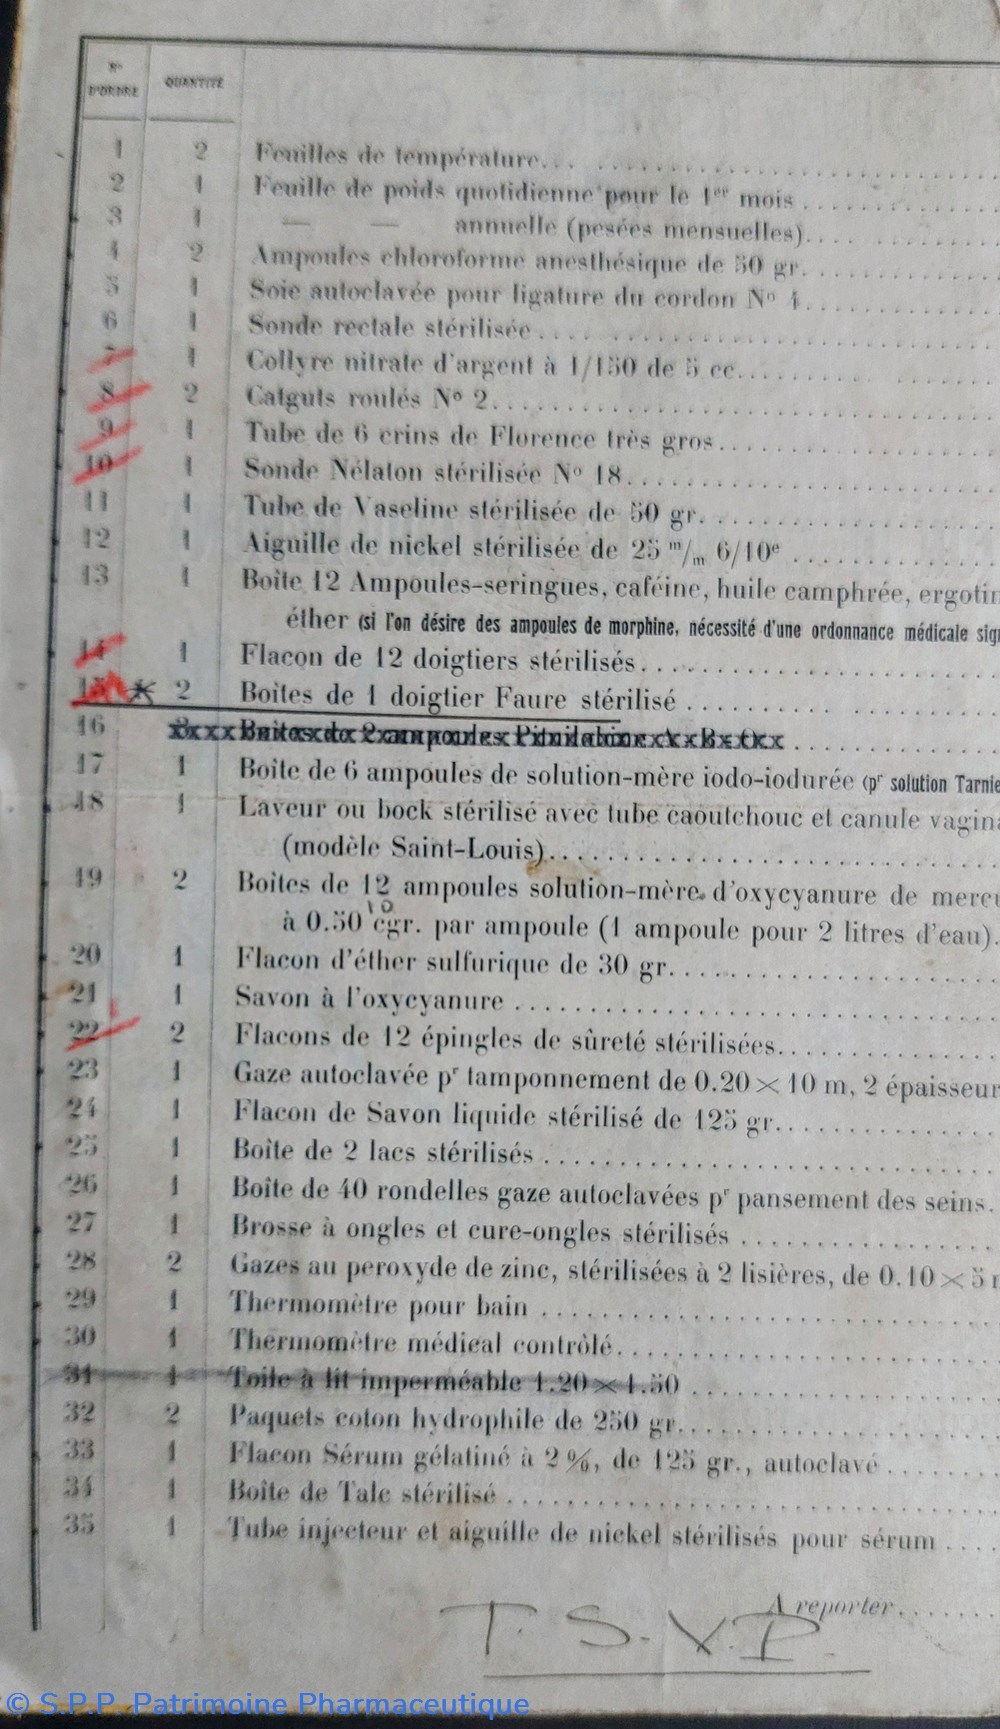 N° D'ORDRE QUANTITÉ
1 2 Feuilles de température
2 1 Feuille de poids quotidienne pour le 1er mois
3 1 — — annuelle (pesées mensuelles)
4 2 Ampoules chloroforme anesthésique de 50 gr.
5 1 Soie autoclavée pour ligature du cordon N° 4
6 1 Sonde rectale stérilisée
7 1 Collyre nitrate d'argent à 1/150 de 5 cc.
8 2 Catguts roulés N° 2
9 1 Tube de 6 crins de Florence très gros
10 1 Sonde Nélaton stérilisée N° 18
11 1 Tube de Vaseline stérilisée de 50 gr.
12 1 Aiguille de nickel stérilisée de 25 m/m 6/10e
13 1 Boîte 12 Ampoules-seringues, caféine, huile camphrée, ergotin
éther (si l'on désire des ampoules de morphine, nécessité d'une ordonnance médicale sig
14 1 Flacon de 12 doigtiers stérilisés
15 * 2 Boîtes de 1 doigtier Faure stérilisé
16 Boîtes de 2 ampoules
17 1 Boîte de 6 ampoules de solution-mère iodo-iodurée (pr solution Tarnie
18 1 Laveur ou bock stérilisé avec tube caoutchouc et canule vagina
(modèle Saint-Louis)
19 2 Boîtes de 12 ampoules solution-mère d'oxycyanure de mercu
10
à 0.50 cgr. par ampoule (1 ampoule pour 2 litres d'eau).
20 1 Flacon d'éther sulfurique de 30 gr.
21 1 Savon à l'oxycyanure
22 2 Flacons de 12 épingles de sûreté stérilisées
23 1 Gaze autoclavée pr tamponnement de 0.20 × 10 m, 2 épaisseur
24 1 Flacon de Savon liquide stérilisé de 125 gr.
25 1 Boîte de 2 lacs stérilisés
26 1 Boîte de 40 rondelles gaze autoclavées pr pansement des seins.
27 1 Brosse à ongles et cure-ongles stérilisés
28 2 Gazes au peroxyde de zinc, stérilisées à 2 lisières, de 0.10 × 5
29 1 Thermomètre pour bain
30 1 Thermomètre médical contrôlé
31 1 Toile à lit imperméable 1.20 × 1.50
32 2 Paquets coton hydrophile de 250 gr.
33 1 Flacon Sérum gélatiné à 2 %, de 125 gr., autoclavé
34 1 Boîte de Talc stérilisé
35 1 Tube injecteur et aiguille de nickel stérilisés pour sérum
A reporter
T. S. V. P.
© S.P.P. Patrimoine Pharmaceutique